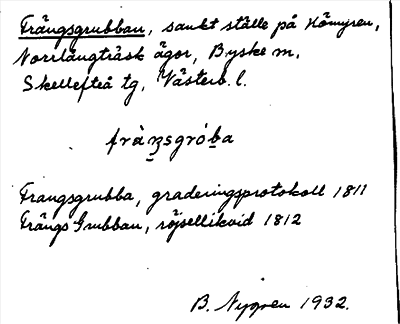 Frängsgrubban, sankt ställe på Hömyren,
Norrlångträsk ägor, Byske sn,
Skellefteå tg, Västerb. l.
fràŋsgró̀ba
Frangsgrubba, graderingsprotokoll 1811
Frängs Grubban, röjsellikvid 1812
B. Nygren 1932.